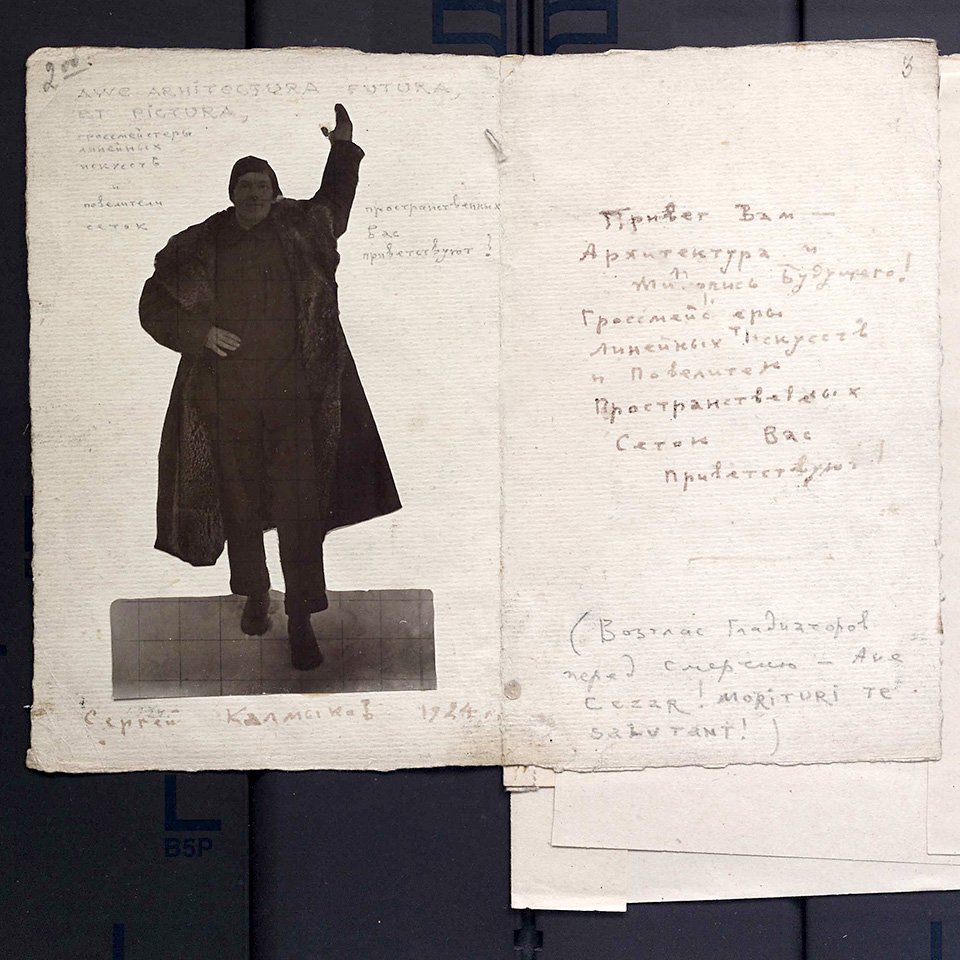 2 00.
AVE ARHITECTURA FUTURA,
ET PICTURA,
гроссмейстеры
линейных
искусств
и
повелители
сеток
пространственных
Вас
приветствуют!
Сергей Калмыков 1924 г.
3
Привет Вам —
Архитектура и
Живопись Будущего!
Гроссмейстеры
Линейных Искусств
и Повелители
Пространственных
Сеток Вас
приветствуют!
(Возглас Гладиаторов
перед смертию — Ave
Cezar! Morituri te
salutant!)
B5P